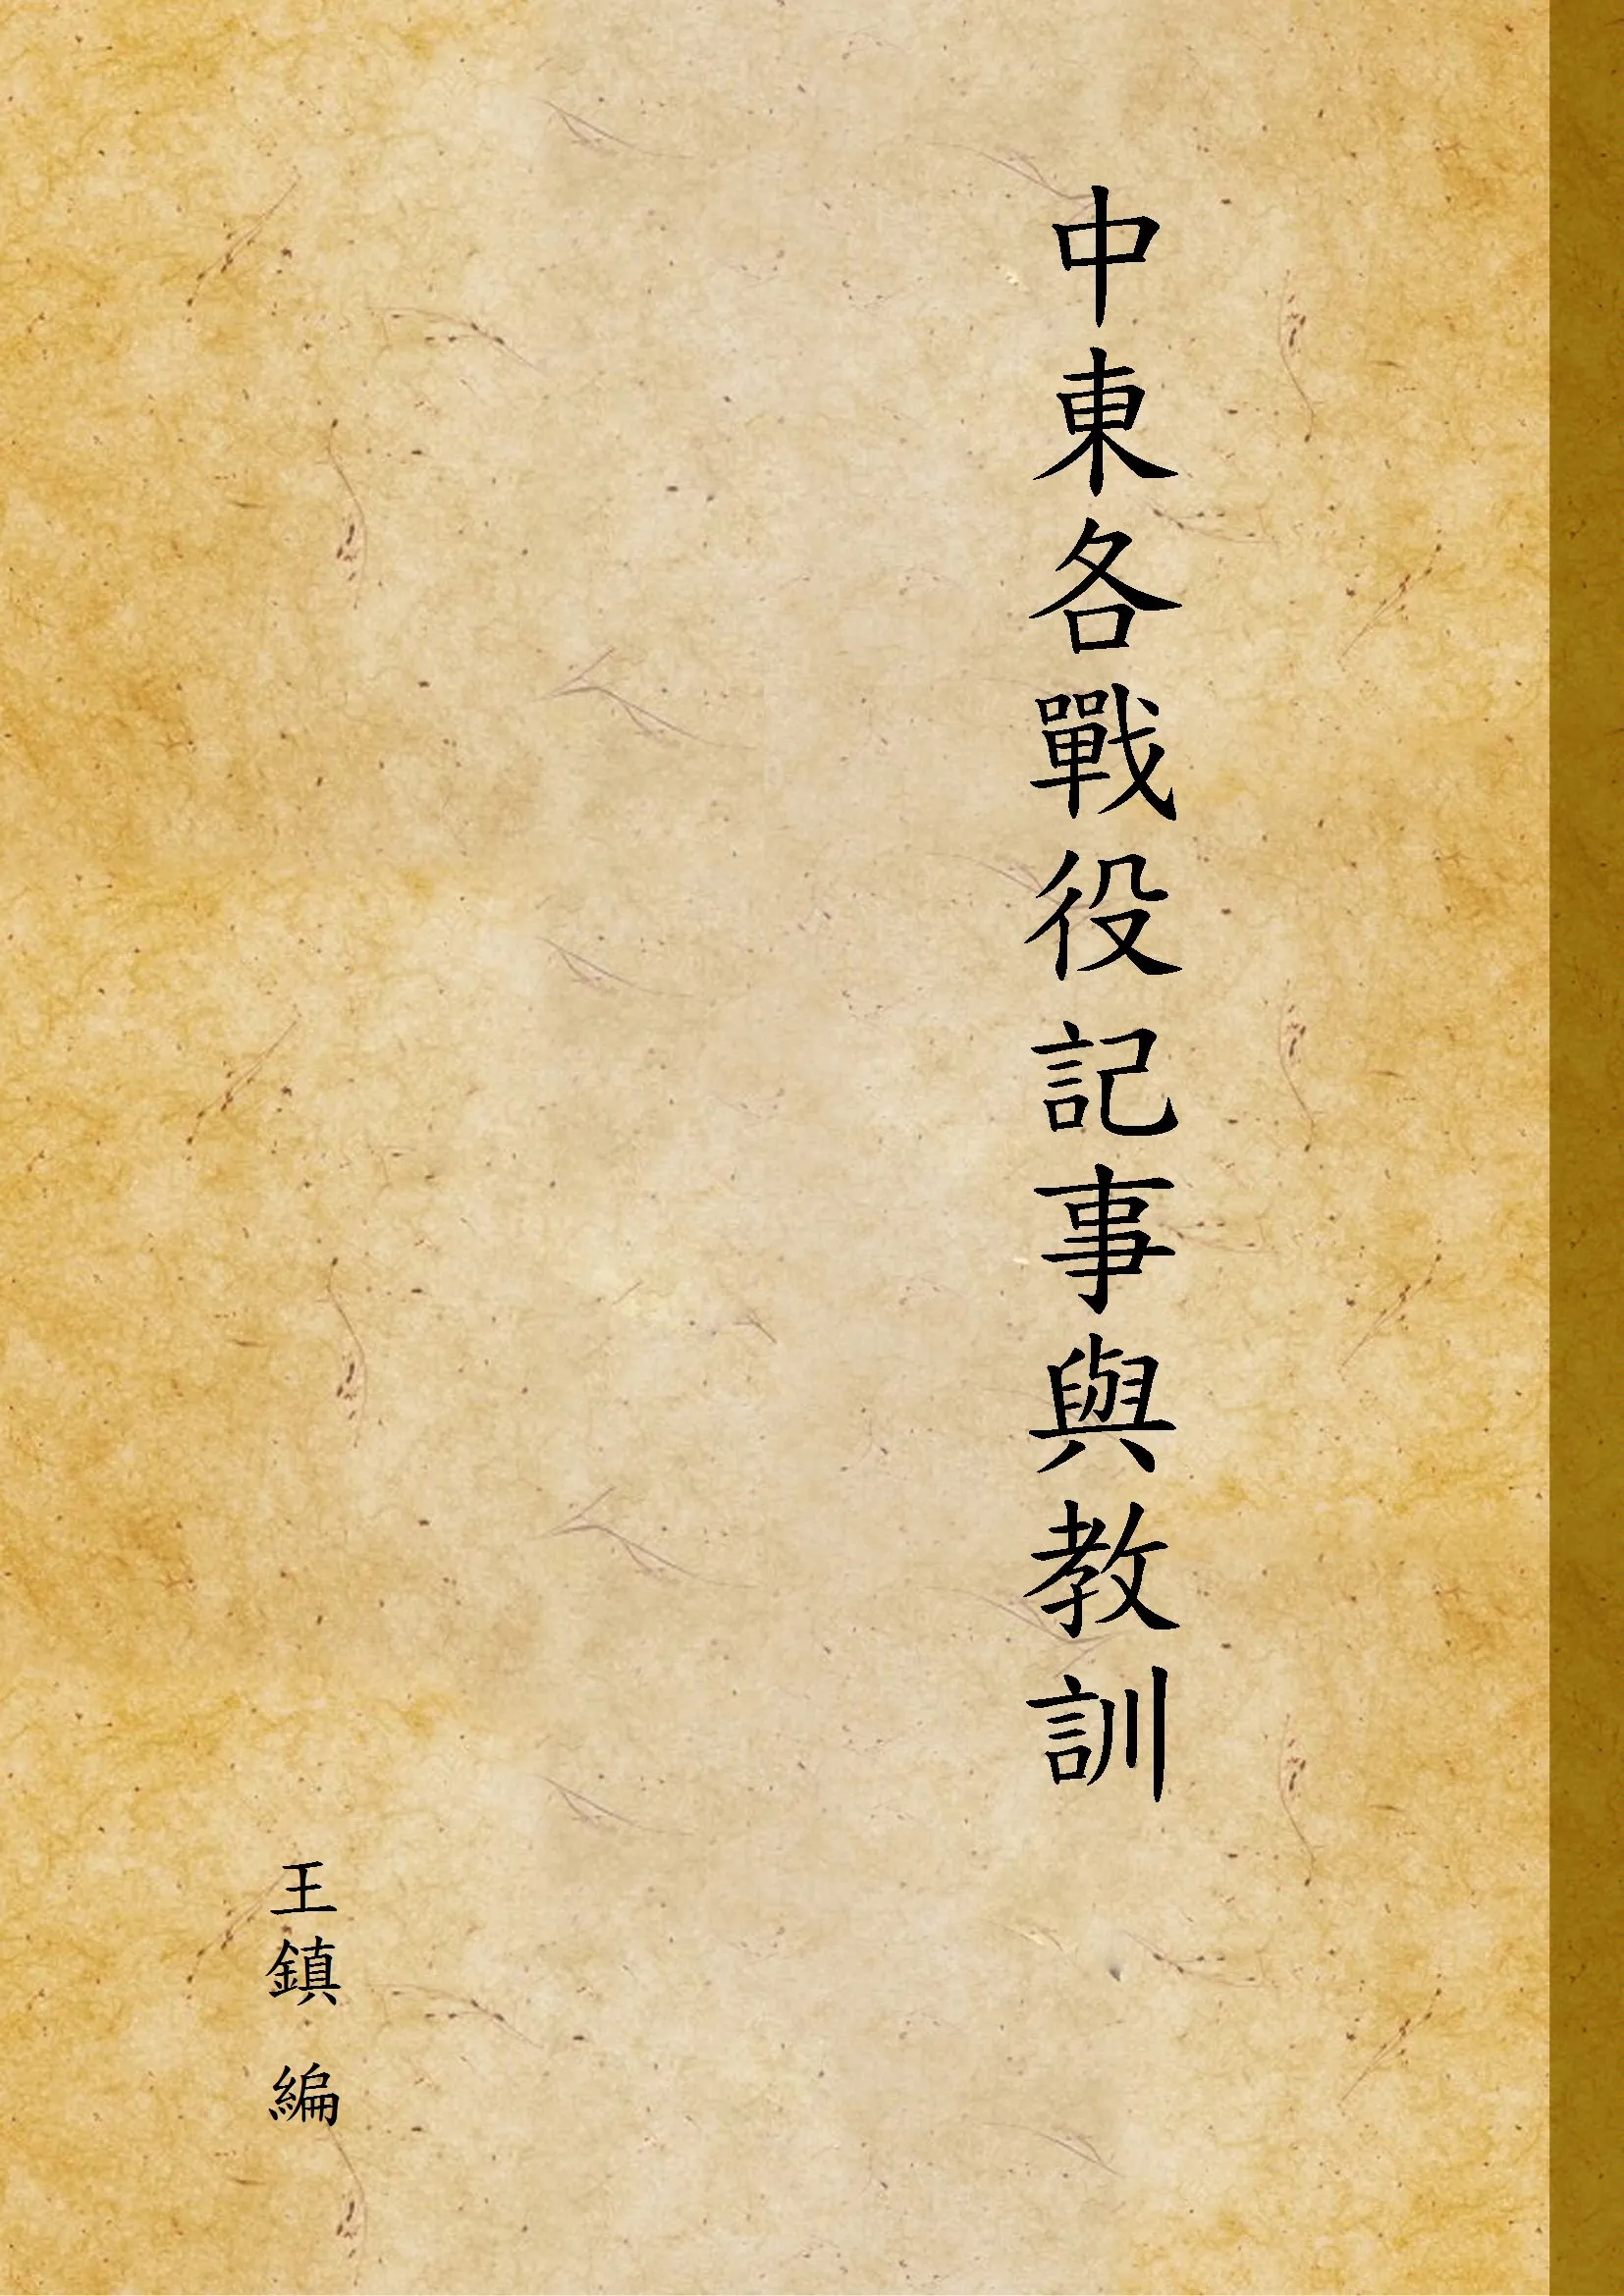 中東各戰役記事與教訓
王鎮 編